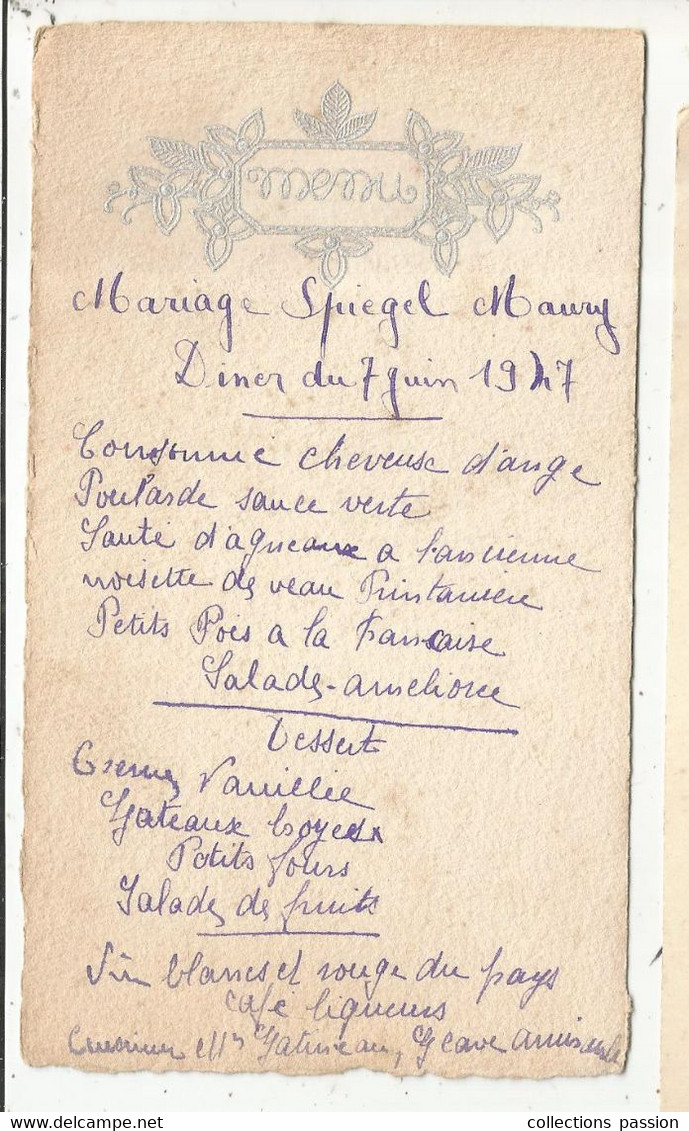 Menu
Mariage Spiegel Maury
Diner du 7 juin 1947
Consommé cheveux d'ange
Poularde sauce verte
Sauté d'agneaux a l'ancienne
noisette de veau Printanière
Petits Pois a la Francaise
Salade ameliorée
Dessert
Creme Vanillée
Gateaux
Petits fours
Salade de fruits
Vin blancs et rouge du pays
café liqueurs
Cuisinier Mr Gatineau,
collections passion